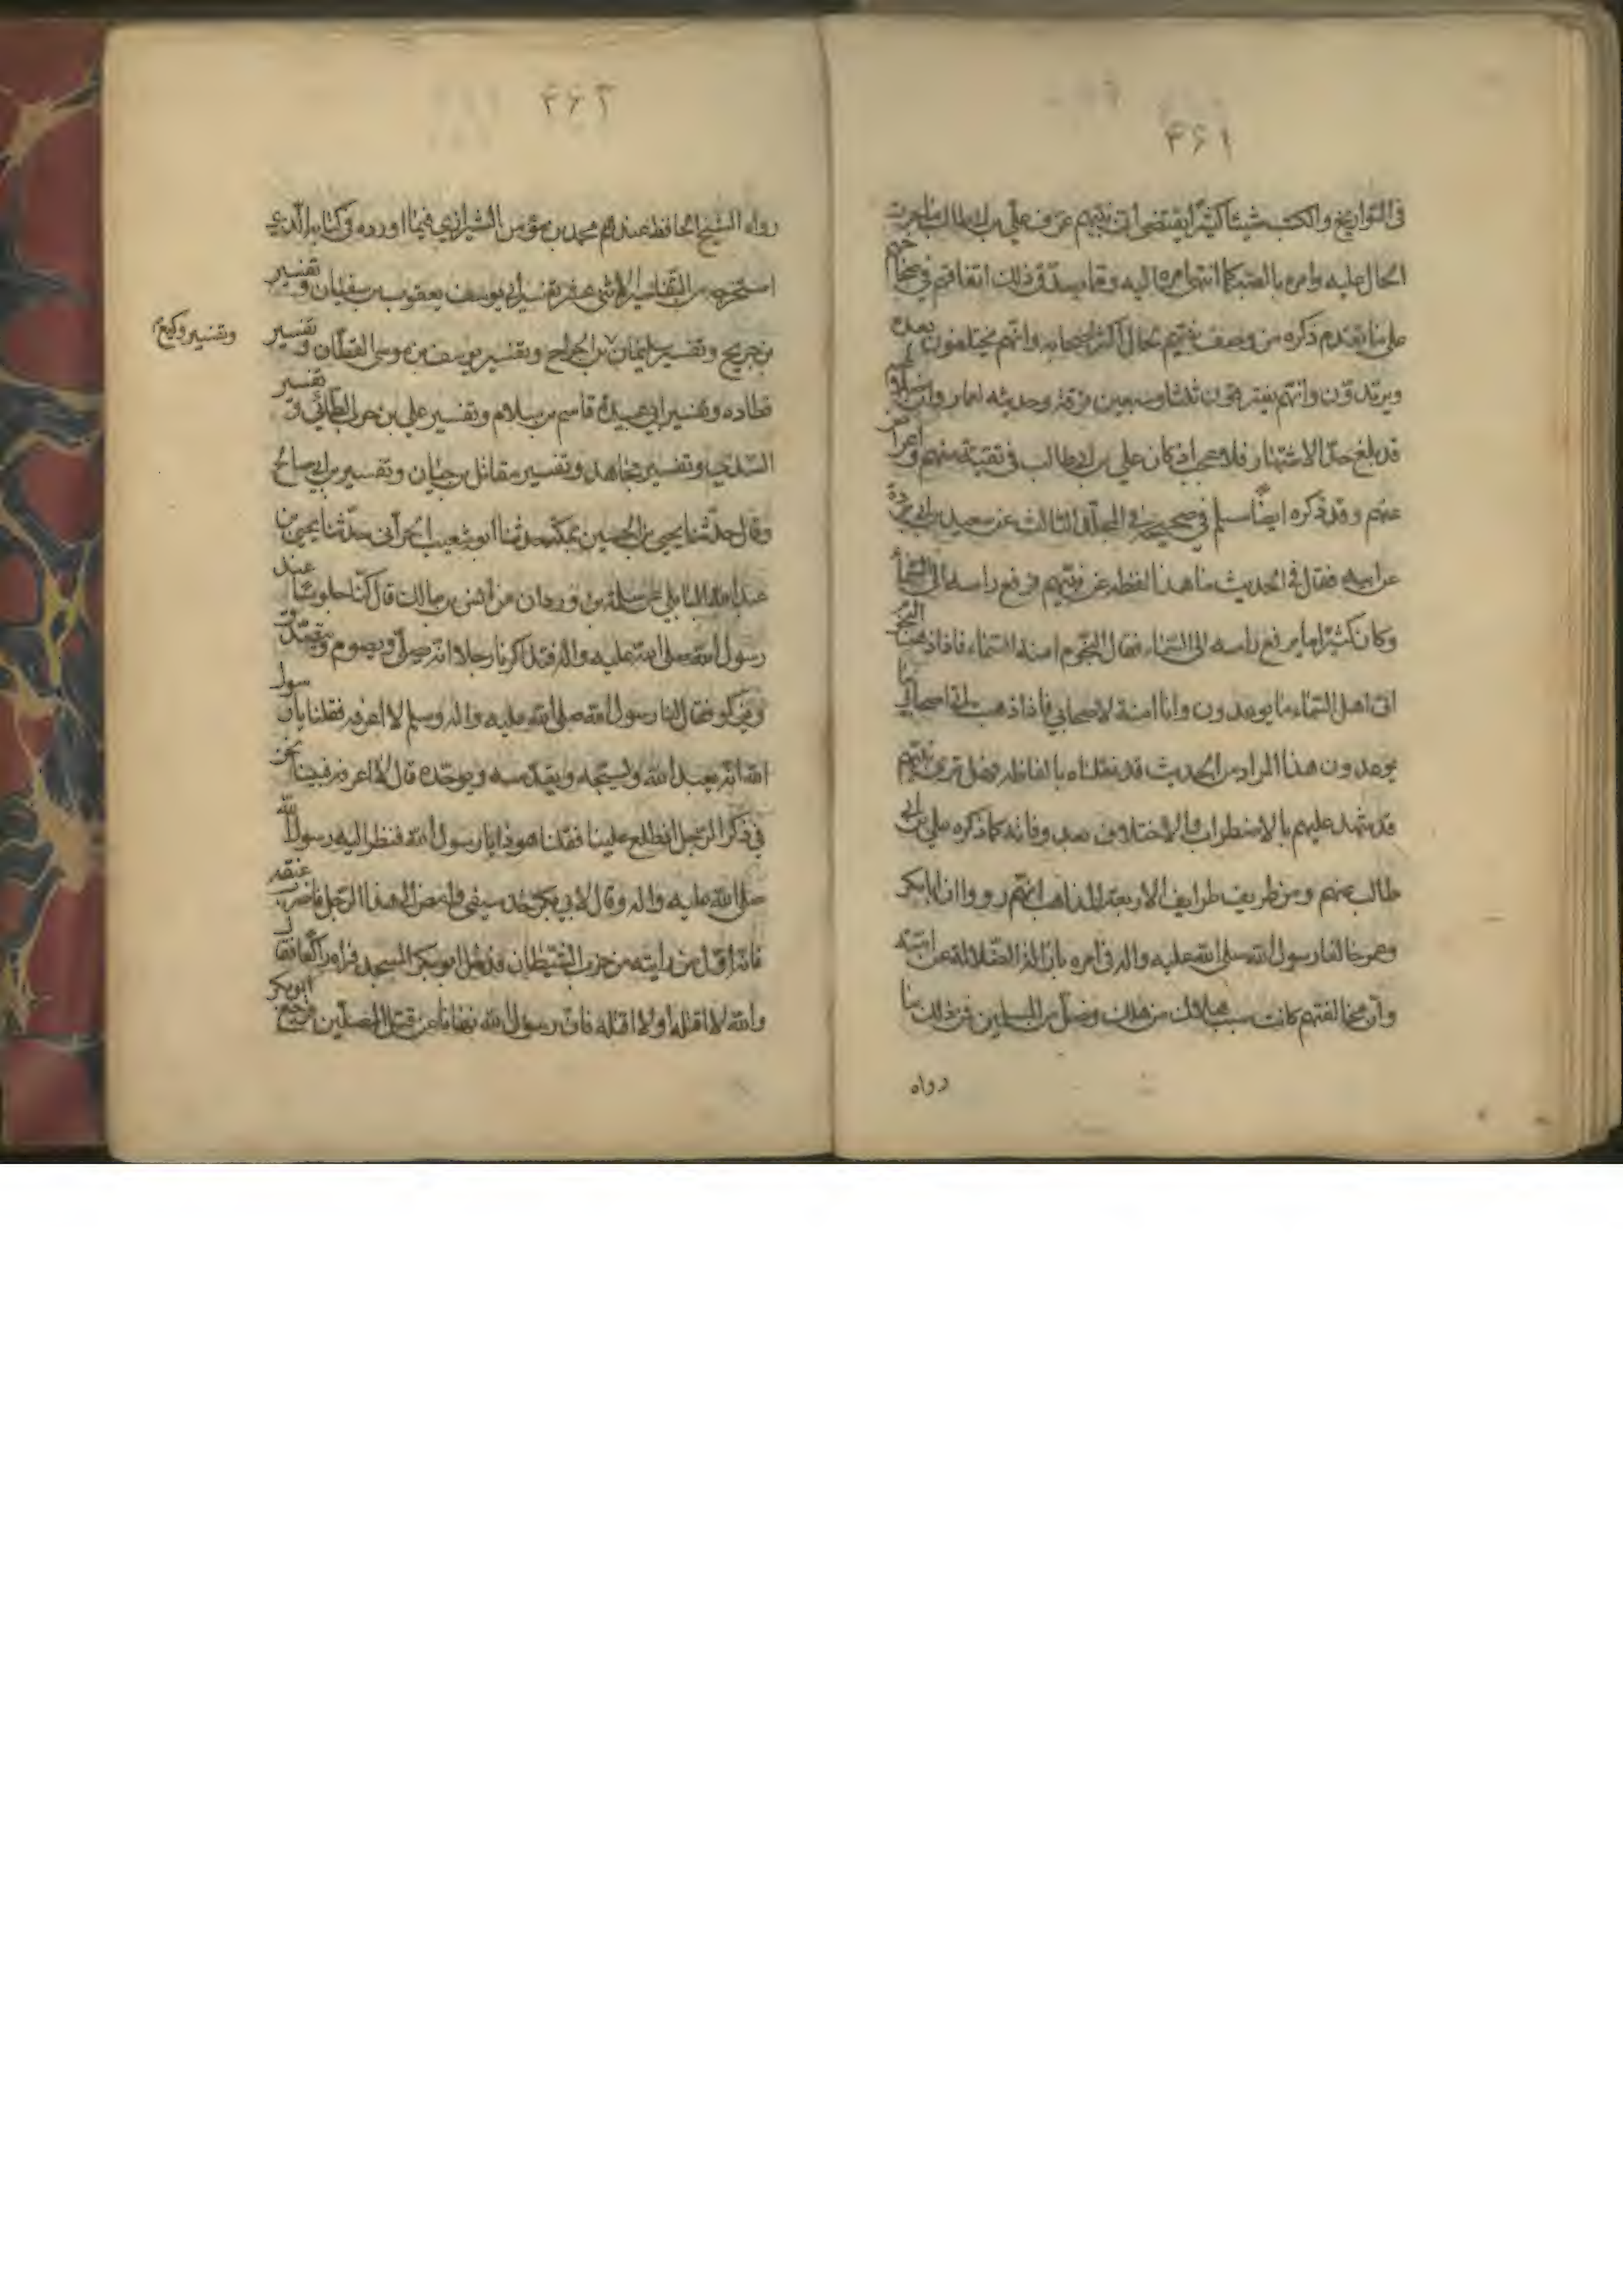 ۴۶۱
فی التواریخ والکتب شیئا کثیرا یقتضی ان نبیهم عرف علی بن ابی طالب ما یجری
الحال علیه وامره بالصبر کما انتهی امره الیه ومما یصدق ذلک اتفاقهم فی صحاحهم
علی ما یقدم ذکره من وصف نبیهم بحال اکثر اصحابه وانهم یختلفون بعده
ویرتدون وانهم یفترقون ثلثا وسبعین فرقة وحدیثه لعمار
قد بلغ حد الاشتهار فلا عجب اذ کان علی بن ابی طالب فی تقیة منهم واعراض
عنهم وقد ذکره ایضا مسلم فی صحیحه فی المجلد الثالث عن سعید بن ابی بردة
عن ابیه فقال فی الحدیث ما هذا لفظه عن نبیهم فرفع راسه الی السماء
وکان کثیرا ما یرفع راسه الی السماء فقال النجوم امنة السماء فاذا ذهبت النجوم
اتی اهل السماء ما یوعدون وانا امنة لاصحابی فاذا ذهبت اتی اصحابی ما
یوعدون هذا المراد من الحدیث قد نقلناه بالفاظه فهل تری نبیهم
قد شهد علیهم بالاضطراب والاختلاف بعد وفاته کما ذکره علی بن ابی
طالب عنهم ومن طریف طرایف الاربعة المذاهب انهم رووا ان ابا بکر
وعمر خالفا رسول الله صلی الله علیه واله فی امره بازالة الضلالة عن امته
وان مخالفتهم کانت سبب هلاک من هلک وضل من المسلمین فمن ذلک ما
رواه
۴۶۲
رواه الشیخ الحافظ عندهم محمد بن مؤمن الشیرازی فیما اورده فی کتابه الذی
استخرجه من التفاسیر الاثنی عشر تفسیر ابی یوسف یعقوب بن سفیان وتفسیر
بن جریح وتفسیر سلیمان بن الجراح وتفسیر یوسف بن موسی القطان وتفسیر
وتفسیر وکیع
قطاده وتفسیر ابی عبیدة قاسم بن سلام وتفسیر علی بن حرب الطائی وتفسیر
السدی وتفسیر مجاهد وتفسیر مقاتل بن حیان وتفسیر بن ابی صالح
وقال حدثنا یحیی بن الحسین بمکة حدثنا ابو شعیب الحرانی حدثنا یحیی بن
عبد الله البابلی عن سلمة بن وردان عن انس بن مالک قال کنا جلوسا عند
رسول الله صلی الله علیه واله فتذاکرنا رجلا انه یصلی ویصوم ویتصدق
ویزکو فقال لنا رسول الله صلی الله علیه واله وسلم لا اعرفه فقلنا یا رسول
الله انه یعبد الله ویسبحه ویقدسه ویوحده قال لا اعرفه فبینا نحن
فی ذکر الرجل اذ طلع علینا فقلنا هو ذا یا رسول الله فنظر الیه رسول الله
صلی الله علیه واله وقال لابی بکر خذ سیفی وامض الی هذا الرجل فاضرب عنقه
فانه اول من رایته من حزب الشیطان فدخل ابو بکر المسجد فراه راکعا فقال
والله لا اقتله ولا اقتله فان رسول الله نهانا عن قتل المصلین فرجع ابو بکر